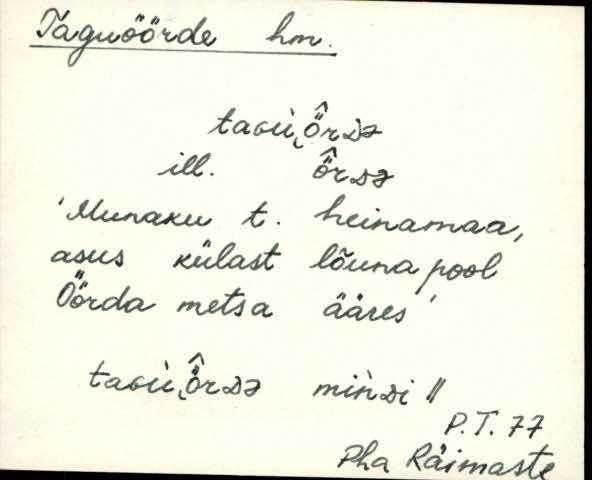 Taguöörde hm.
taɢù͜ö̂rDə
ill. ö̂rDə
'Munaku t. heinamaa,
asus külast lõuna pool
Öörda metsa ääres'
taɢù͜ö̂rDə mìnDi ||
P.T. 77
Pha Räimaste